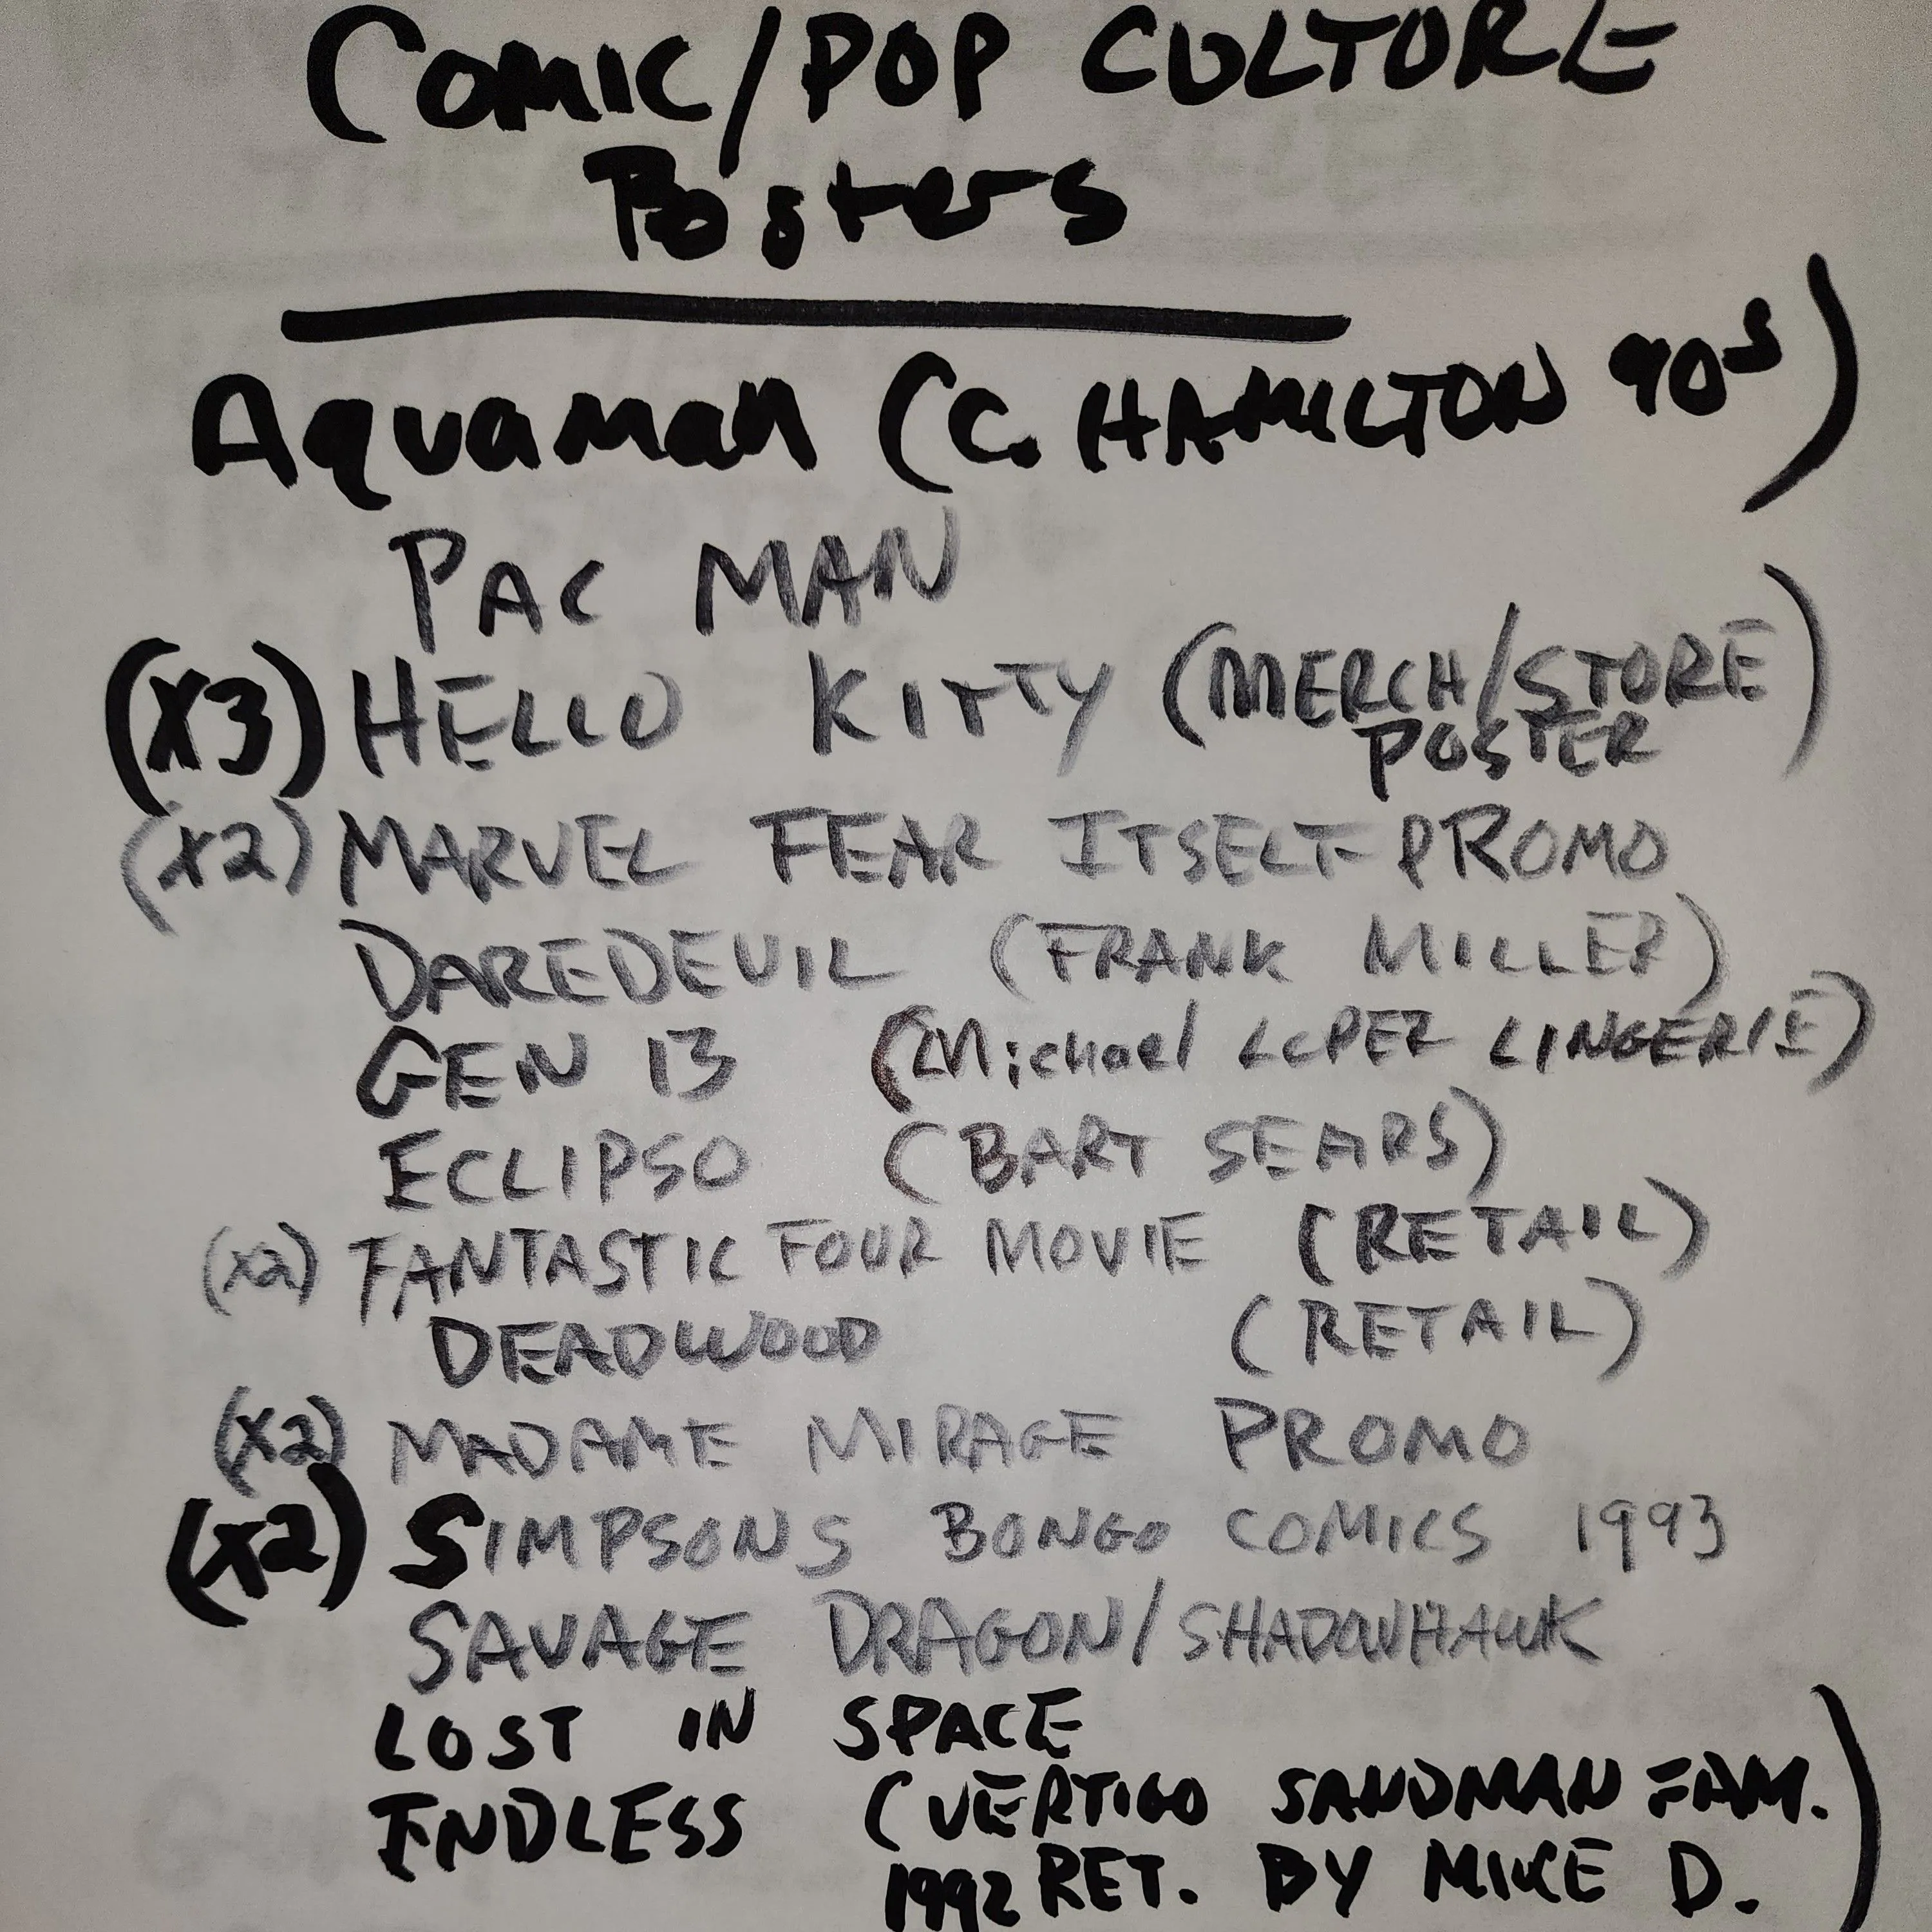 COMIC/POP CULTURE
Posters
Aquaman (C. HAMILTON 90s)
PAC MAN
(X3) HELLO KITTY (MERCH/STORE
POSTER)
(X2) MARVEL FEAR ITSELF PROMO
DAREDEVIL (FRANK MILLER)
GEN 13 (Michael LOPEZ LINGERIE)
ECLIPSO (BART SEARS)
(X2) FANTASTIC FOUR MOVIE (RETAIL)
DEADWOOD (RETAIL)
(X2) MADAME MIRAGE PROMO
(X2) SIMPSONS BONGO COMICS 1993
SAVAGE DRAGON/SHADOWHAWK
LOST IN SPACE
ENDLESS (VERTIGO SANDMAN FAM.
1992 RET. BY MIKE D.)